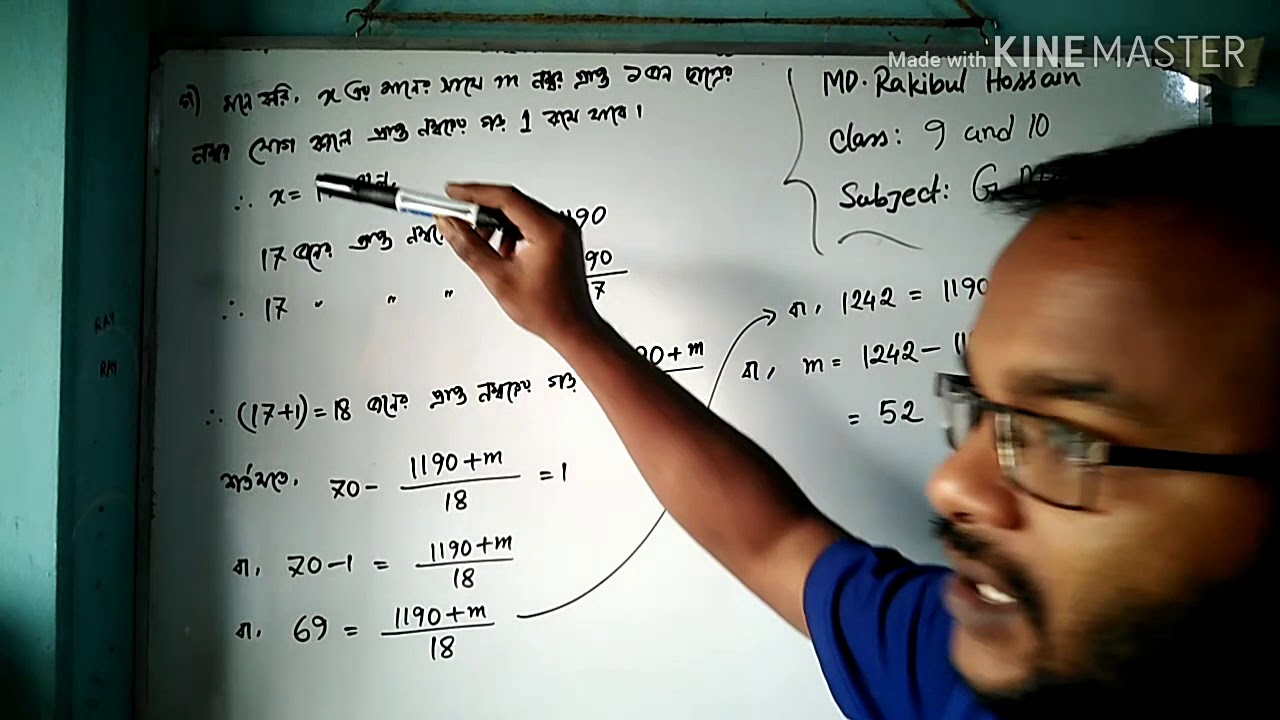 Made with KINEMASTER
গ) মনে করি, x এর মানের সাথে m নম্বর প্রাপ্ত ১ জন ছাত্রের
নম্বর যোগ হলে প্রাপ্ত নম্বরের গড় 1 কমে যাবে।
∴ x =
17 জনের প্রাপ্ত 1190
∴ 17 " " "
∴ (17+1) = 18 জনের প্রাপ্ত নম্বরের গড়
শর্তমতে, 70 - (1190+m)/18 = 1
বা, 70-1 = (1190+m)/18
বা, 69 = (1190+m)/18
MD. Rakibul Hossain
Class: 9 and 10
Subject: G.
বা, 1242 = 1190
বা, m = 1242 -
= 52
RAY
RAY